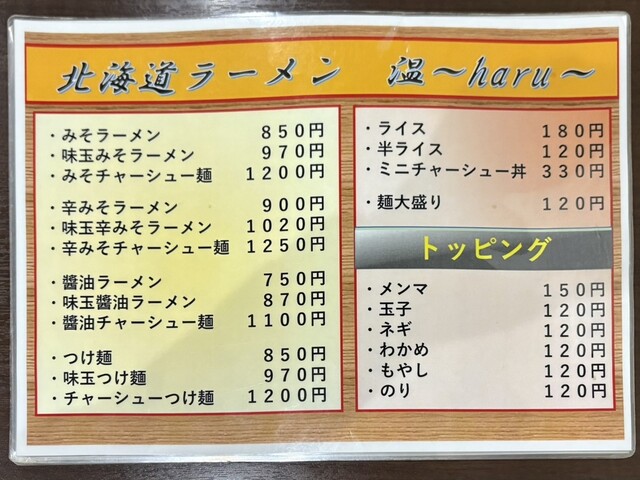 北海道ラーメン 温～haru～
・みそラーメン 850円
・味玉みそラーメン 970円
・みそチャーシュー麺 1200円
・辛みそラーメン 900円
・味玉辛みそラーメン 1020円
・辛みそチャーシュー麺 1250円
・醬油ラーメン 750円
・味玉醬油ラーメン 870円
・醬油チャーシュー麺 1100円
・つけ麺 850円
・味玉つけ麺 970円
・チャーシューつけ麺 1200円
・ライス 180円
・半ライス 120円
・ミニチャーシュー丼 330円
・麺大盛り 120円
トッピング
・メンマ 150円
・玉子 120円
・ネギ 120円
・わかめ 120円
・もやし 120円
・のり 120円